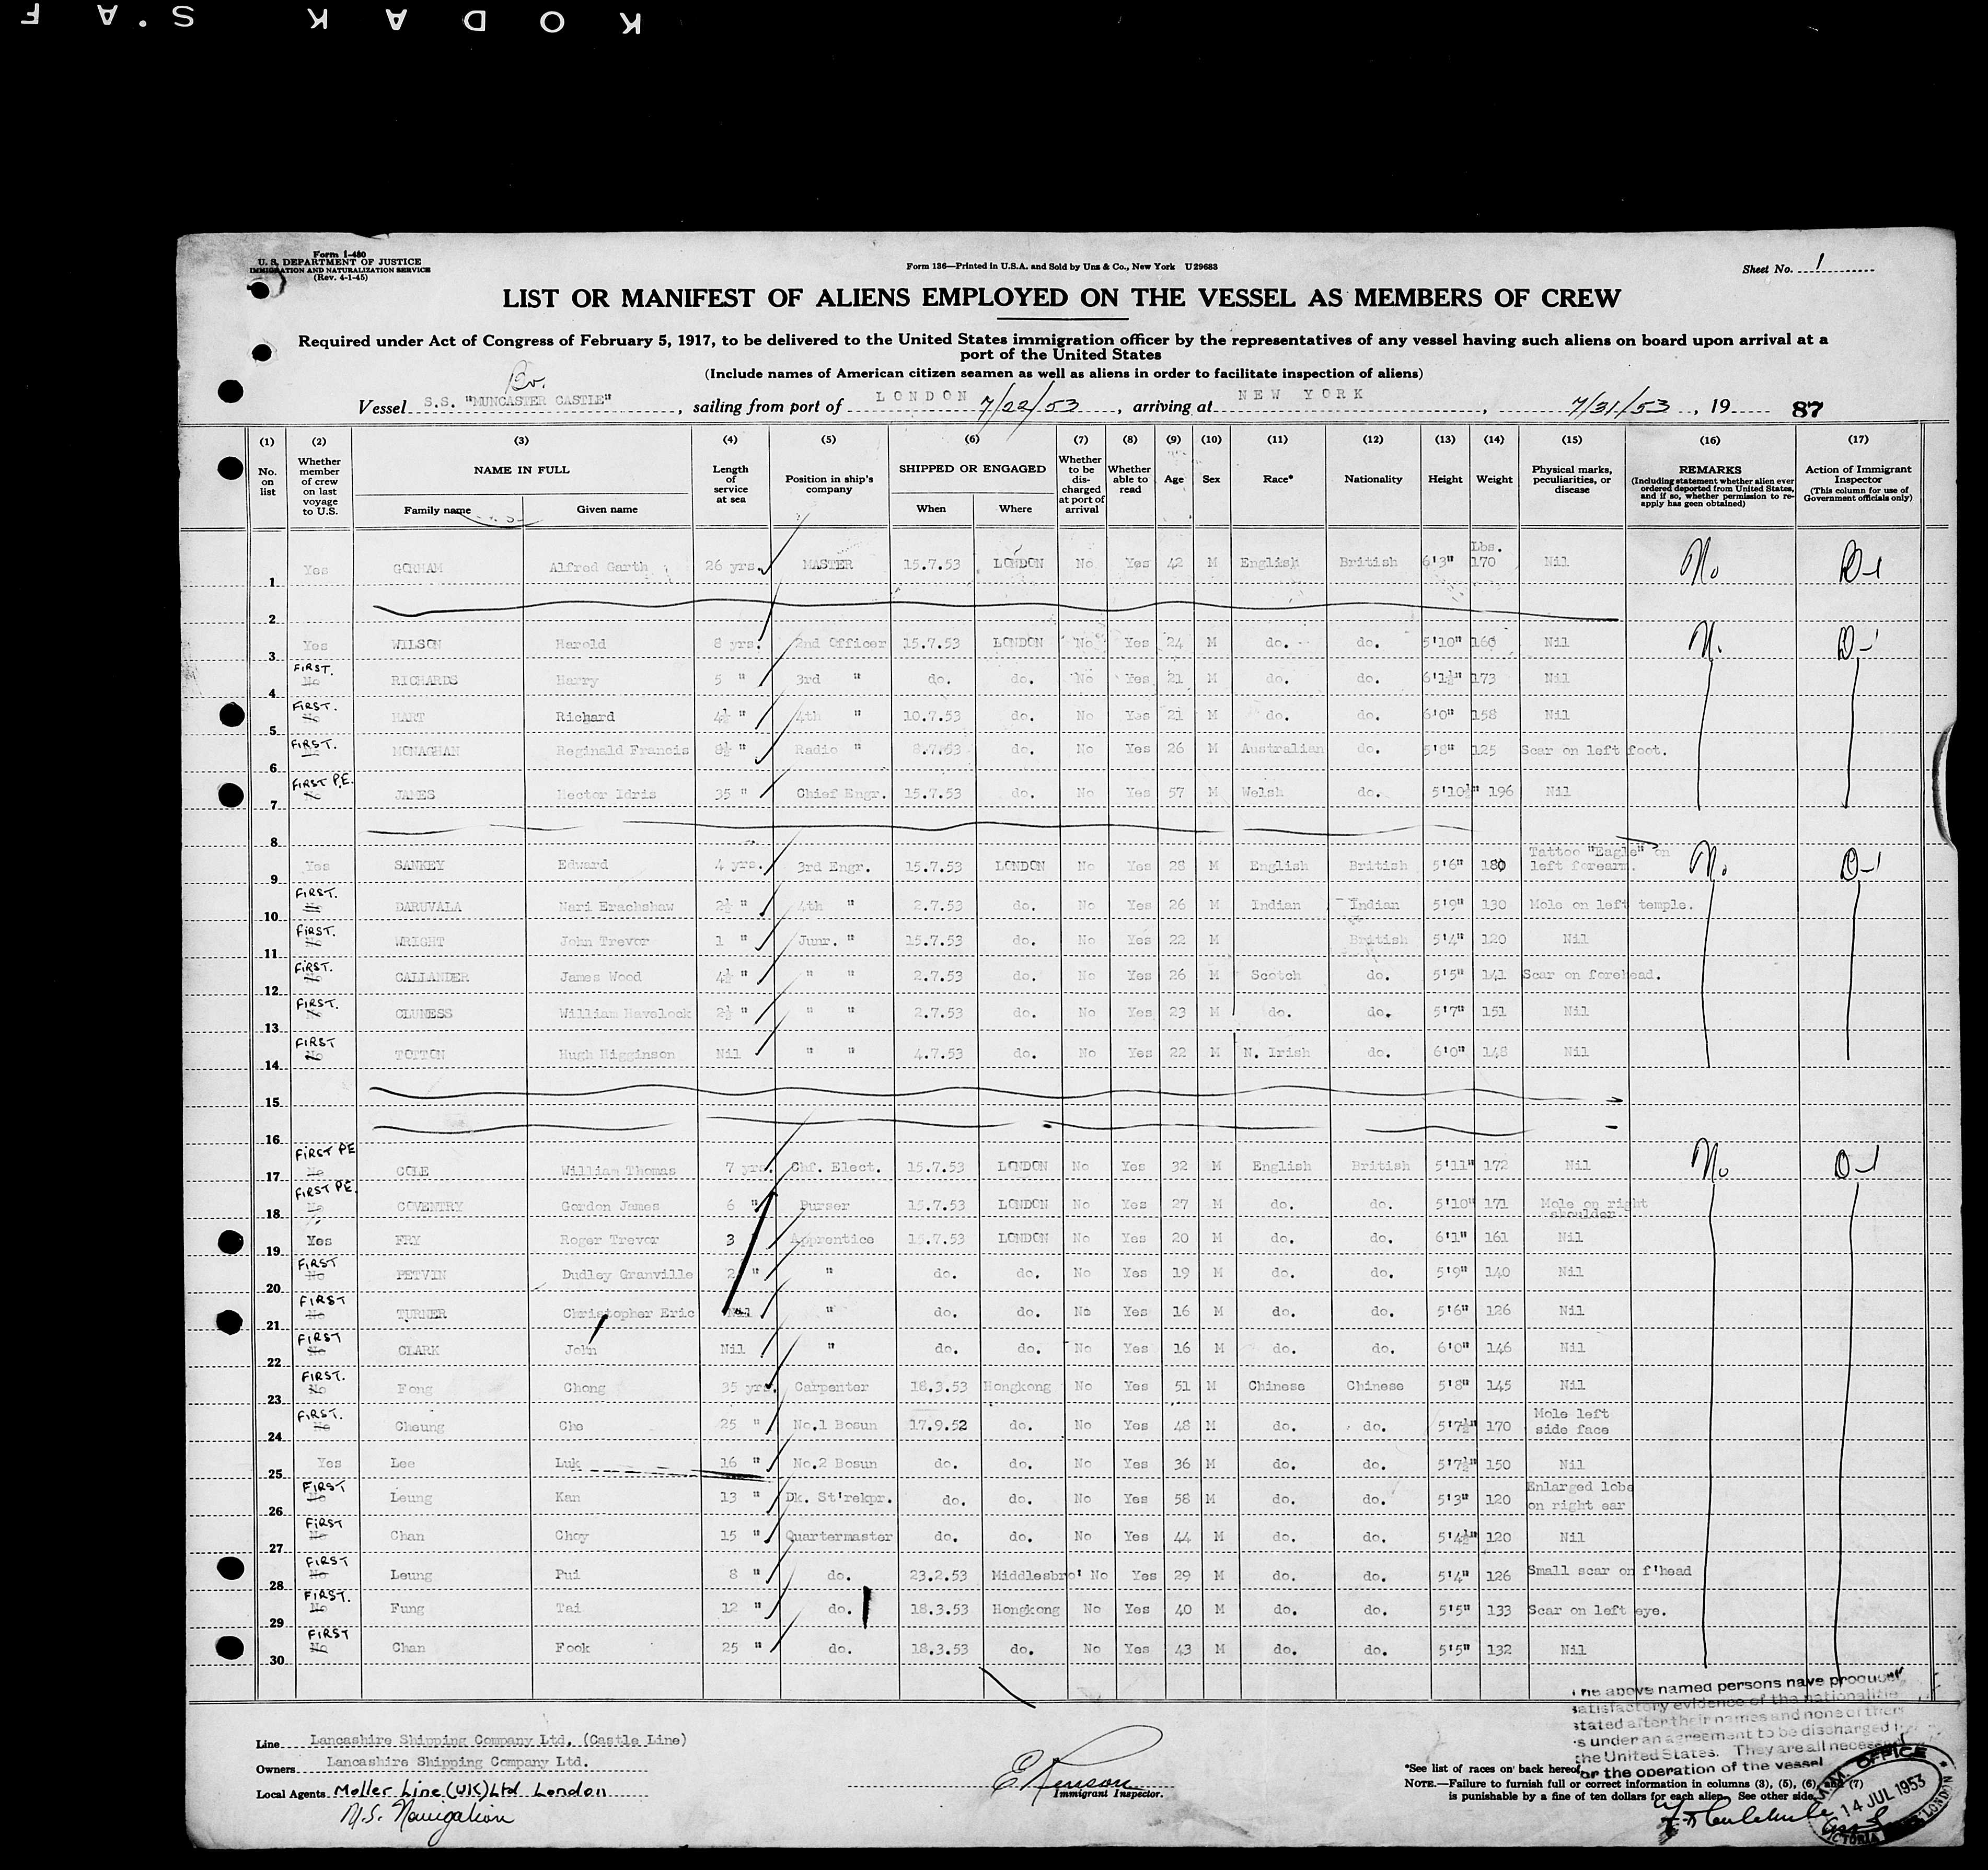 KODAK S.A.F
Form I-480
U. S. DEPARTMENT OF JUSTICE
IMMIGRATION AND NATURALIZATION SERVICE
(Rev. 4-1-45)
Form 136—Printed in U.S.A. and Sold by Unz & Co., New York U29683
Sheet No. 1
LIST OR MANIFEST OF ALIENS EMPLOYED ON THE VESSEL AS MEMBERS OF CREW
Required under Act of Congress of February 5, 1917, to be delivered to the United States immigration officer by the representatives of any vessel having such aliens on board upon arrival at a
port of the United States
(Include names of American citizen seamen as well as aliens in order to facilitate inspection of aliens)
Br.
Vessel S.S. "MUNCASTER CASTLE", sailing from port of LONDON 7/22/53, arriving at NEW YORK, 7/31/53, 19 87
(1) No. on list
(2) Whether member of crew on last voyage to U.S.
(3) NAME IN FULL Family name Given name
(4) Length of service at sea
(5) Position in ship's company
(6) SHIPPED OR ENGAGED When Where
(7) Whether to be discharged at port of arrival
(8) Whether able to read
(9) Age
(10) Sex
(11) Race*
(12) Nationality
(13) Height
(14) Weight
(15) Physical marks, peculiarities, or disease
(16) REMARKS (Including statement whether alien ever ordered deported from United States, and if so, whether permission to re-apply has geen obtained)
(17) Action of Immigrant Inspector (This column for use of Government officials only)
1 Yes GORHAM Alfred Garth 26 yrs. MASTER 15.7.53 LONDON No Yes 42 M English British 6'3" Lbs. 170 Nil No D-1
2
3 Yes WILSON Harold 8 yrs. 2nd Officer 15.7.53 LONDON No Yes 24 M do. do. 5'10" 160 Nil No D-1
4 FIRST. No RICHARDS Harry 5 " 3rd " do. do. No Yes 21 M do. do. 6'1½" 173 Nil
5 FIRST. No HART Richard 4½ " 4th " 10.7.53 do. No Yes 21 M do. do. 6'0" 158 Nil
6 FIRST. No MONAGHAN Reginald Francis 8½ " Radio " 8.7.53 do. No Yes 26 M Australian do. 5'8" 125 Scar on left foot.
7 FIRST P.E. No JAMES Hector Idris 35 " Chief Engr. 15.7.53 do. No Yes 57 M Welsh do. 5'10½" 196 Nil
8
9 Yes SANKEY Edward 4 yrs. 3rd Engr. 15.7.53 LONDON No Yes 28 M English British 5'6" 180 Tattoo "Eagle" on left forearm. No D-1
10 FIRST. No DARUVALA Nari Erachshaw 2½ " 4th " 2.7.53 do. No Yes 26 M Indian Indian 5'9" 130 Mole on left temple.
11 FIRST. No WRIGHT John Trevor 1 " Junr. " 15.7.53 do. No Yes 22 M British 5'4" 120 Nil
12 FIRST. No CALLANDER James Wood 4½ " " " 2.7.53 do. No Yes 26 M Scotch do. 5'5" 141 Scar on forehead.
13 FIRST. No CLUNESS William Havelock 2½ " " " 2.7.53 do. No Yes 23 M do. do. 5'7" 151 Nil
14 FIRST No TOTTON Hugh Higginson Nil " " 4.7.53 do. No Yes 22 M N. Irish do. 6'0" 148 Nil
15
16
17 FIRST PE No COLE William Thomas 7 yrs. Chf. Elect. 15.7.53 LONDON No Yes 32 M English British 5'11" 172 Nil No D-1
18 FIRST PE. No COVENTRY Gordon James 6 " Purser 15.7.53 LONDON No Yes 27 M do. do. 5'10" 171 Mole on right shoulder
19 Yes FRY Roger Trevor 3 " Apprentice 15.7.53 LONDON No Yes 20 M do. do. 6'1" 161 Nil
20 FIRST No PETVIN Dudley Granville 2 " " do. do. No Yes 19 M do. do. 5'9" 140 Nil
21 FIRST No TURNER Christopher Eric Nil " do. do. No Yes 16 M do. do. 5'6" 126 Nil
22 FIRST No CLARK John Nil " do. do. No Yes 16 M do. do. 6'0" 146 Nil
23 FIRST. No Fong Chong 35 yrs. Carpenter 18.3.53 Hongkong No Yes 51 M Chinese Chinese 5'8" 145 Nil
24 FIRST. No Cheung Cho 25 " No.1 Bosun 17.9.52 do. No Yes 48 M do. do. 5'7½" 170 Mole left side face
25 Yes Lee Luk 16 " No.2 Bosun do. do. No Yes 36 M do. do. 5'7½" 150 Nil
26 FIRST No Leung Kan 13 " Dk. St'rekpr. do. do. No Yes 58 M do. do. 5'3" 120 Enlarged lobe on right ear
27 FIRST No Chan Choy 15 " Quartermaster do. do. No Yes 44 M do. do. 5'4½" 120 Nil
28 FIRST No Leung Pui 8 " do. 23.2.53 Middlesbro' No Yes 29 M do. do. 5'4" 126 Small scar on f'head
29 FIRST. No Fung Tai 12 " do. 18.3.53 Hongkong No Yes 40 M do. do. 5'5" 133 Scar on left eye.
30 FIRST No Chan Fook 25 " do. 18.3.53 do. No Yes 43 M do. do. 5'5" 132 Nil
The above named persons have produced
satisfactory evidence of the nationalitie
stated after their names and none of them
is under an agreement to be discharged in
the United States. They are all necessary
for the operation of the vessel
Line Lancashire Shipping Company Ltd. (Castle Line)
Owners Lancashire Shipping Company Ltd.
Local Agents Moller Line (UK) Ltd London
M.S. Navigation
Immigrant Inspector.
*See list of races on back hereof.
NOTE.—Failure to furnish full or correct information in columns (3), (5), (6), and (7)
is punishable by a fine of ten dollars for each alien. See other side.
M.M. OFFICE
14 JUL 1953
VICTORIA LONDON